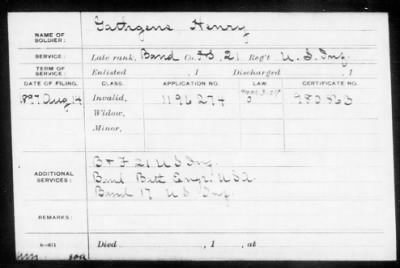 NAME OF SOLDIER: Gathgens Henry
SERVICE: Late rank, Band Co. 21 Reg't U. S. Inf.
TERM OF SERVICE: Enlisted , 1 Discharged , 1
DATE OF FILING. CLASS. APPLICATION NO. LAW. CERTIFICATE NO.
Aug 14 Invalid, 1196274 983863
Widow,
Minor,
ADDITIONAL SERVICES:
B & F 21 U S Inf.
Band Batt Engr. U.S.A.
Band 17 U S Inf
REMARKS:
Died , 1 , at